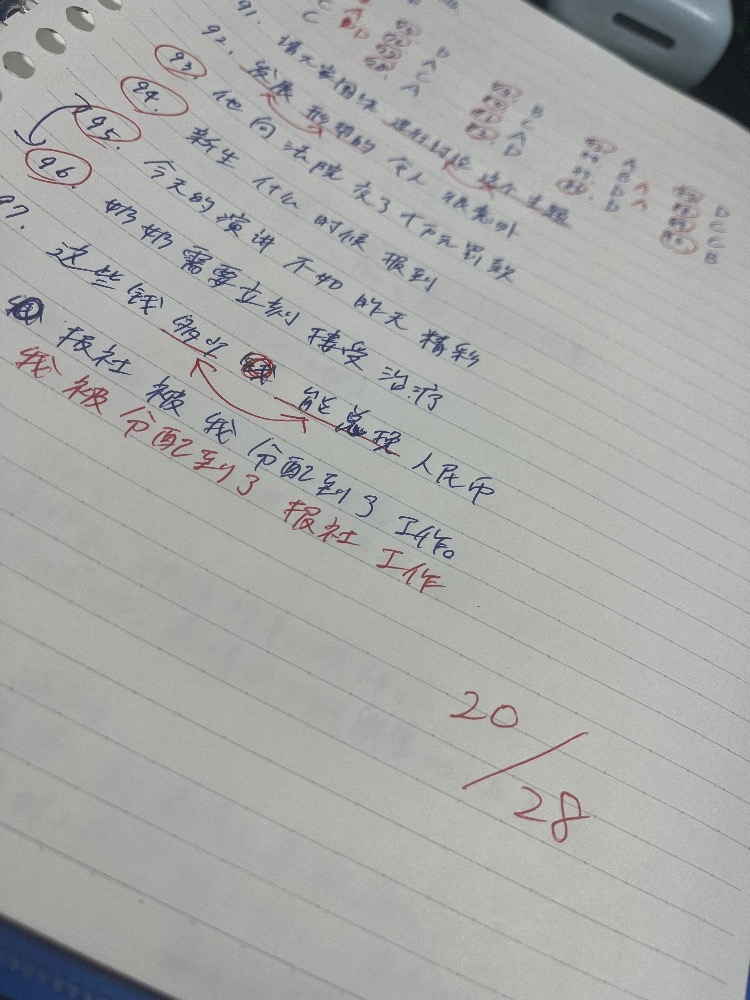 91. 请大家围绕 进行讨论 这个主题
92. 发展 形势的 令人 很意外
93. 他向法院交了千万元罚款
94. 新生 什么 时候 报到
95. 今天的演讲不如昨天精彩
96. 奶奶需要立刻接受治疗
97. 这些钱 多少 能兑现 人民币
报社 被 我 分配到了 工作。
我 被 分配到了 报社 工作
20/28